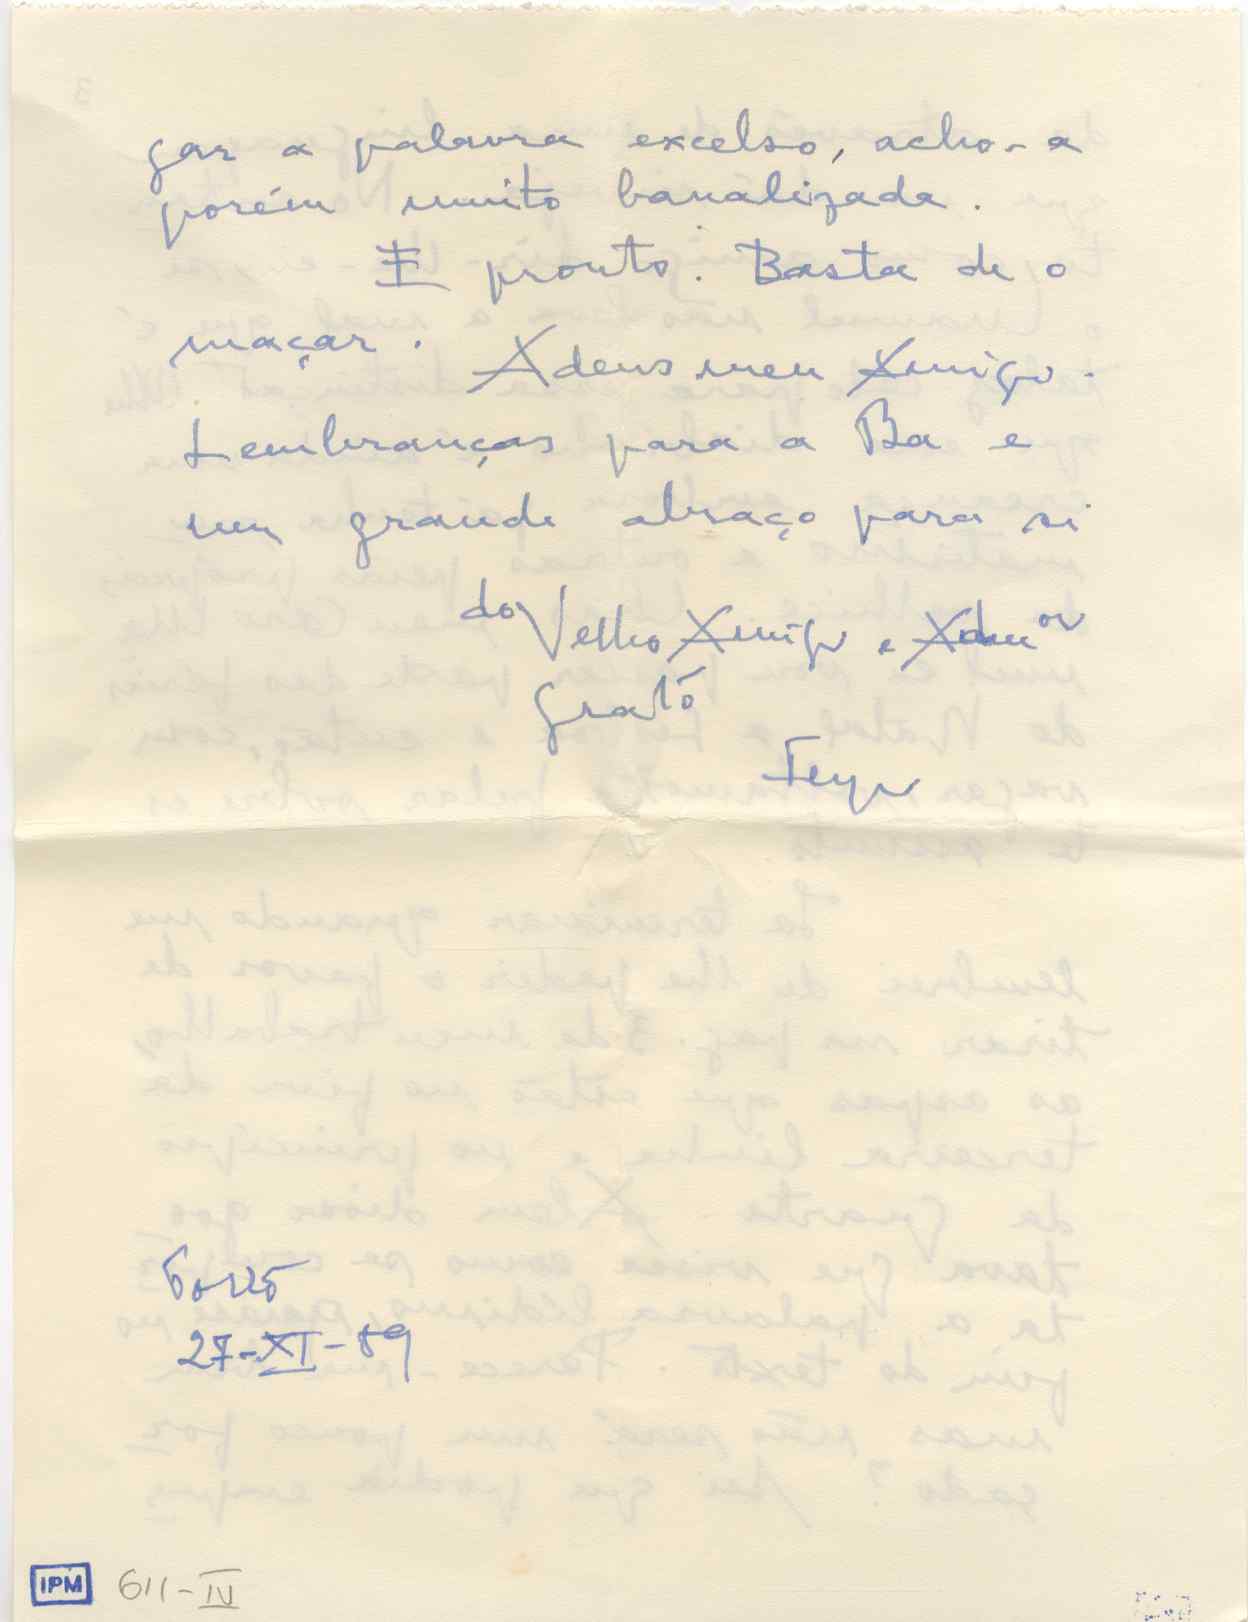 gar a palavra excelso, acho-a
porém muito banalizada.
E pronto. Basta de o
maçar. Adeus meu Amigo.
Lembranças para a Ba e
um grande abraço para si
do Velho Amigo e Admor
Grato
Porto
27-XI-89
IPM 611-IV